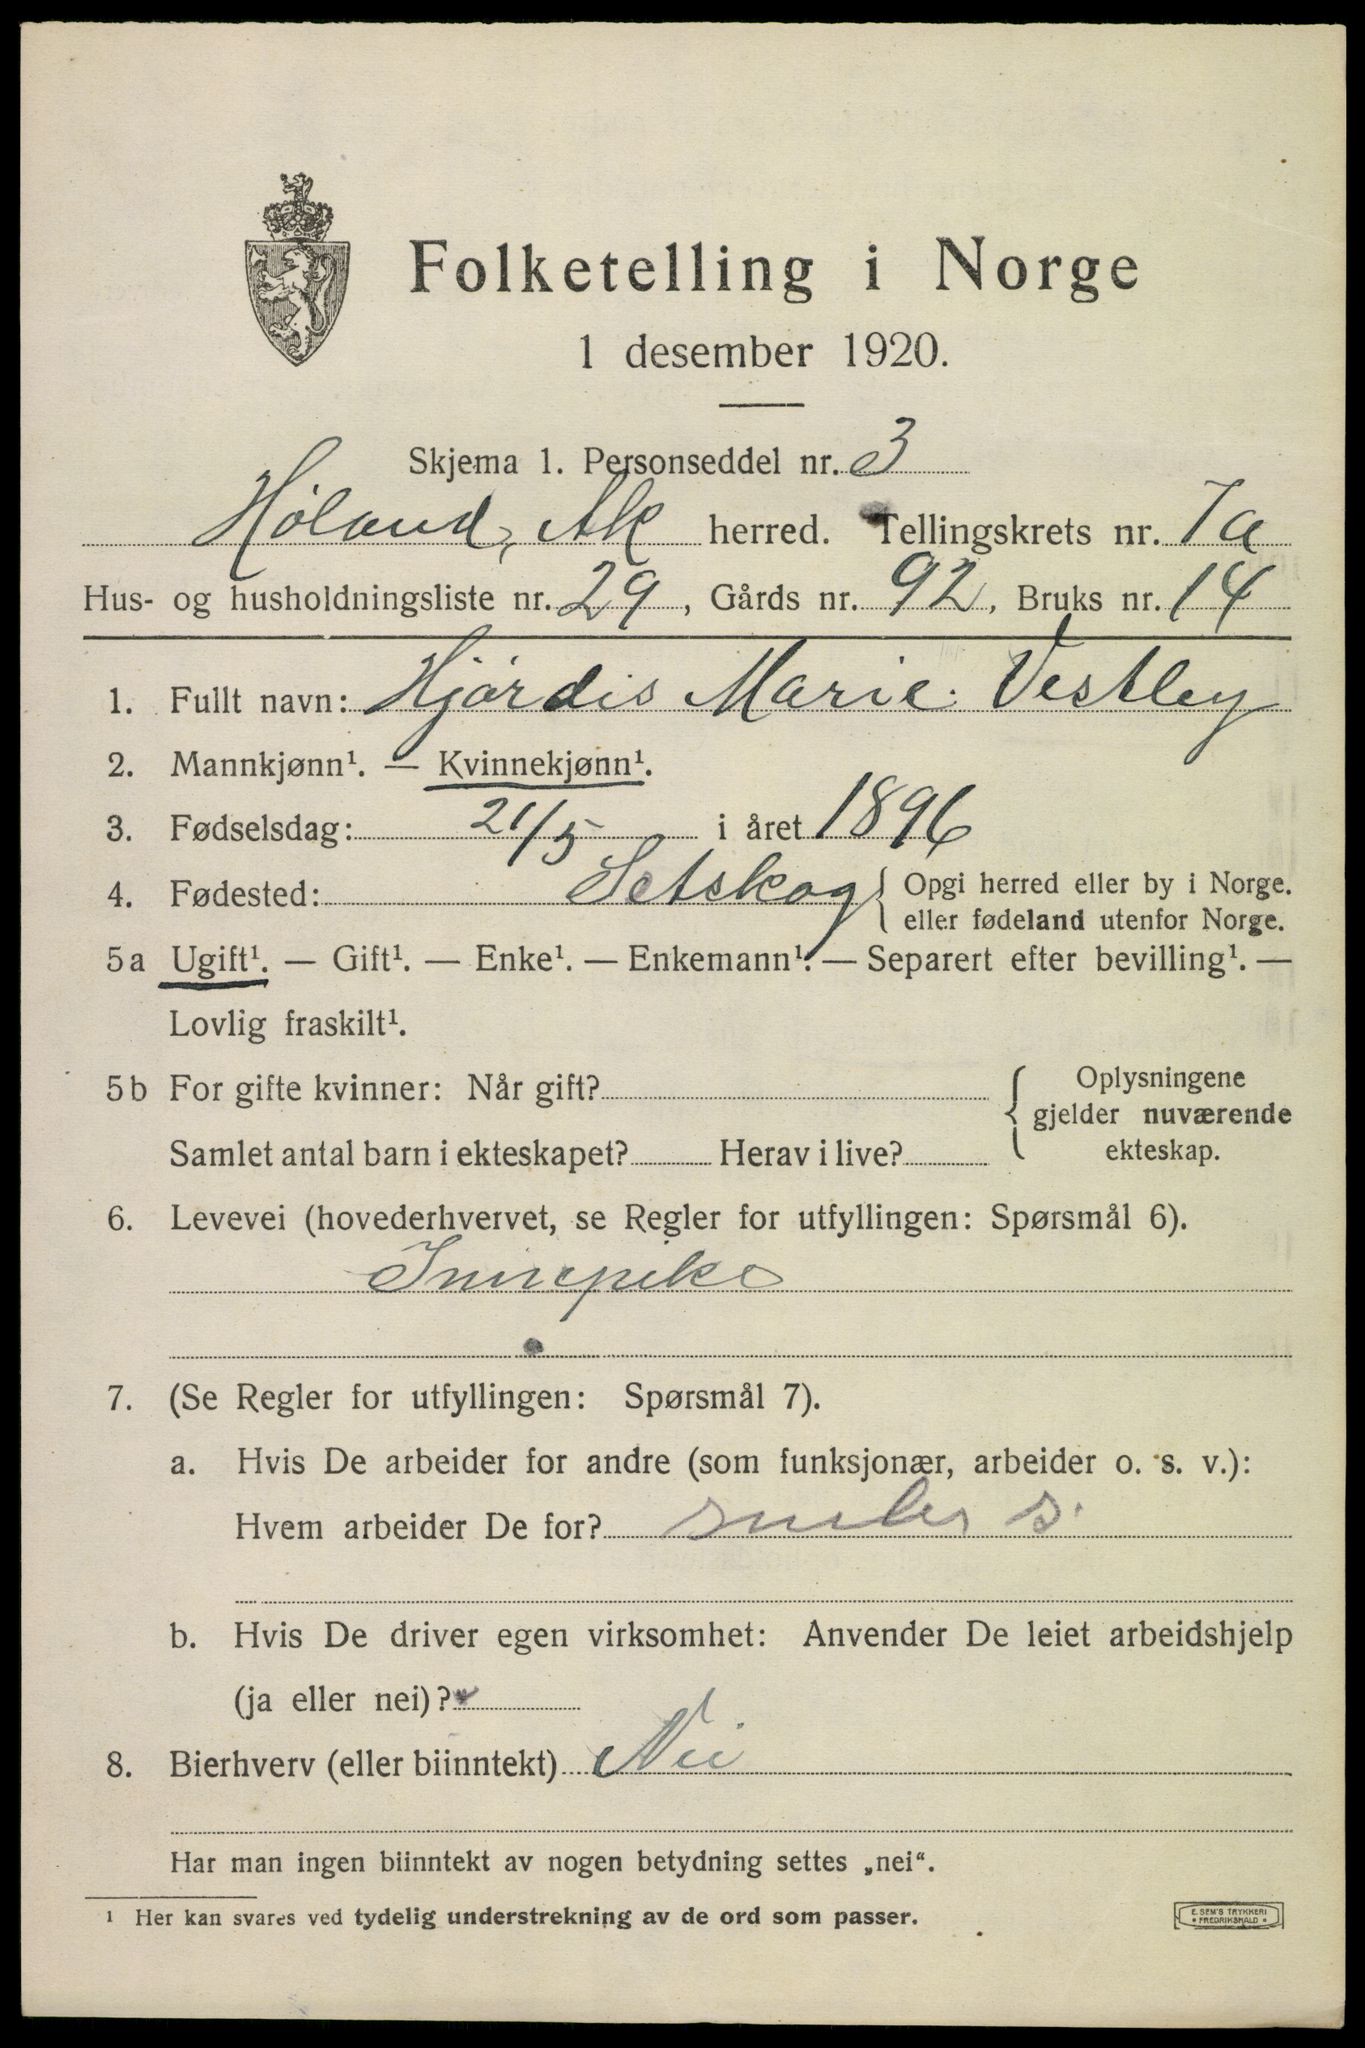 Folketelling i Norge
1 desember 1920.
Skjema 1. Personseddel nr. 3
Høland, Ak herred. Tellingskrets nr. 7a
Hus- og husholdningsliste nr. 29, Gårds nr. 92, Bruks nr. 14
1. Fullt navn: Hjørdis Marie Vestley
2. Mannkjønn¹. — Kvinnekjønn¹.
3. Fødselsdag: 21/5 i året 1896
4. Fødested: Setskog { Opgi herred eller by i Norge.
eller fødeland utenfor Norge.
5a Ugift¹. — Gift¹. — Enke¹. — Enkemann¹. — Separert efter bevilling¹. —
Lovlig fraskilt¹.
5b For gifte kvinner: Når gift?
Samlet antal barn i ekteskapet? Herav i live?
{ Oplysningene
gjelder nuværende
ekteskap.
6. Levevei (hovederhvervet, se Regler for utfyllingen: Spørsmål 6).
Innepike
7. (Se Regler for utfyllingen: Spørsmål 7).
a. Hvis De arbeider for andre (som funksjonær, arbeider o. s. v.):
Hvem arbeider De for?
b. Hvis De driver egen virksomhet: Anvender De leiet arbeidshjelp
(ja eller nei)?
8. Bierhverv (eller biinntekt) Nei
Har man ingen biinntekt av nogen betydning settes „nei“.
¹ Her kan svares ved tydelig understrekning av de ord som passer.
E. SEM'S TRYKKERI
* FREDRIKSHALD *